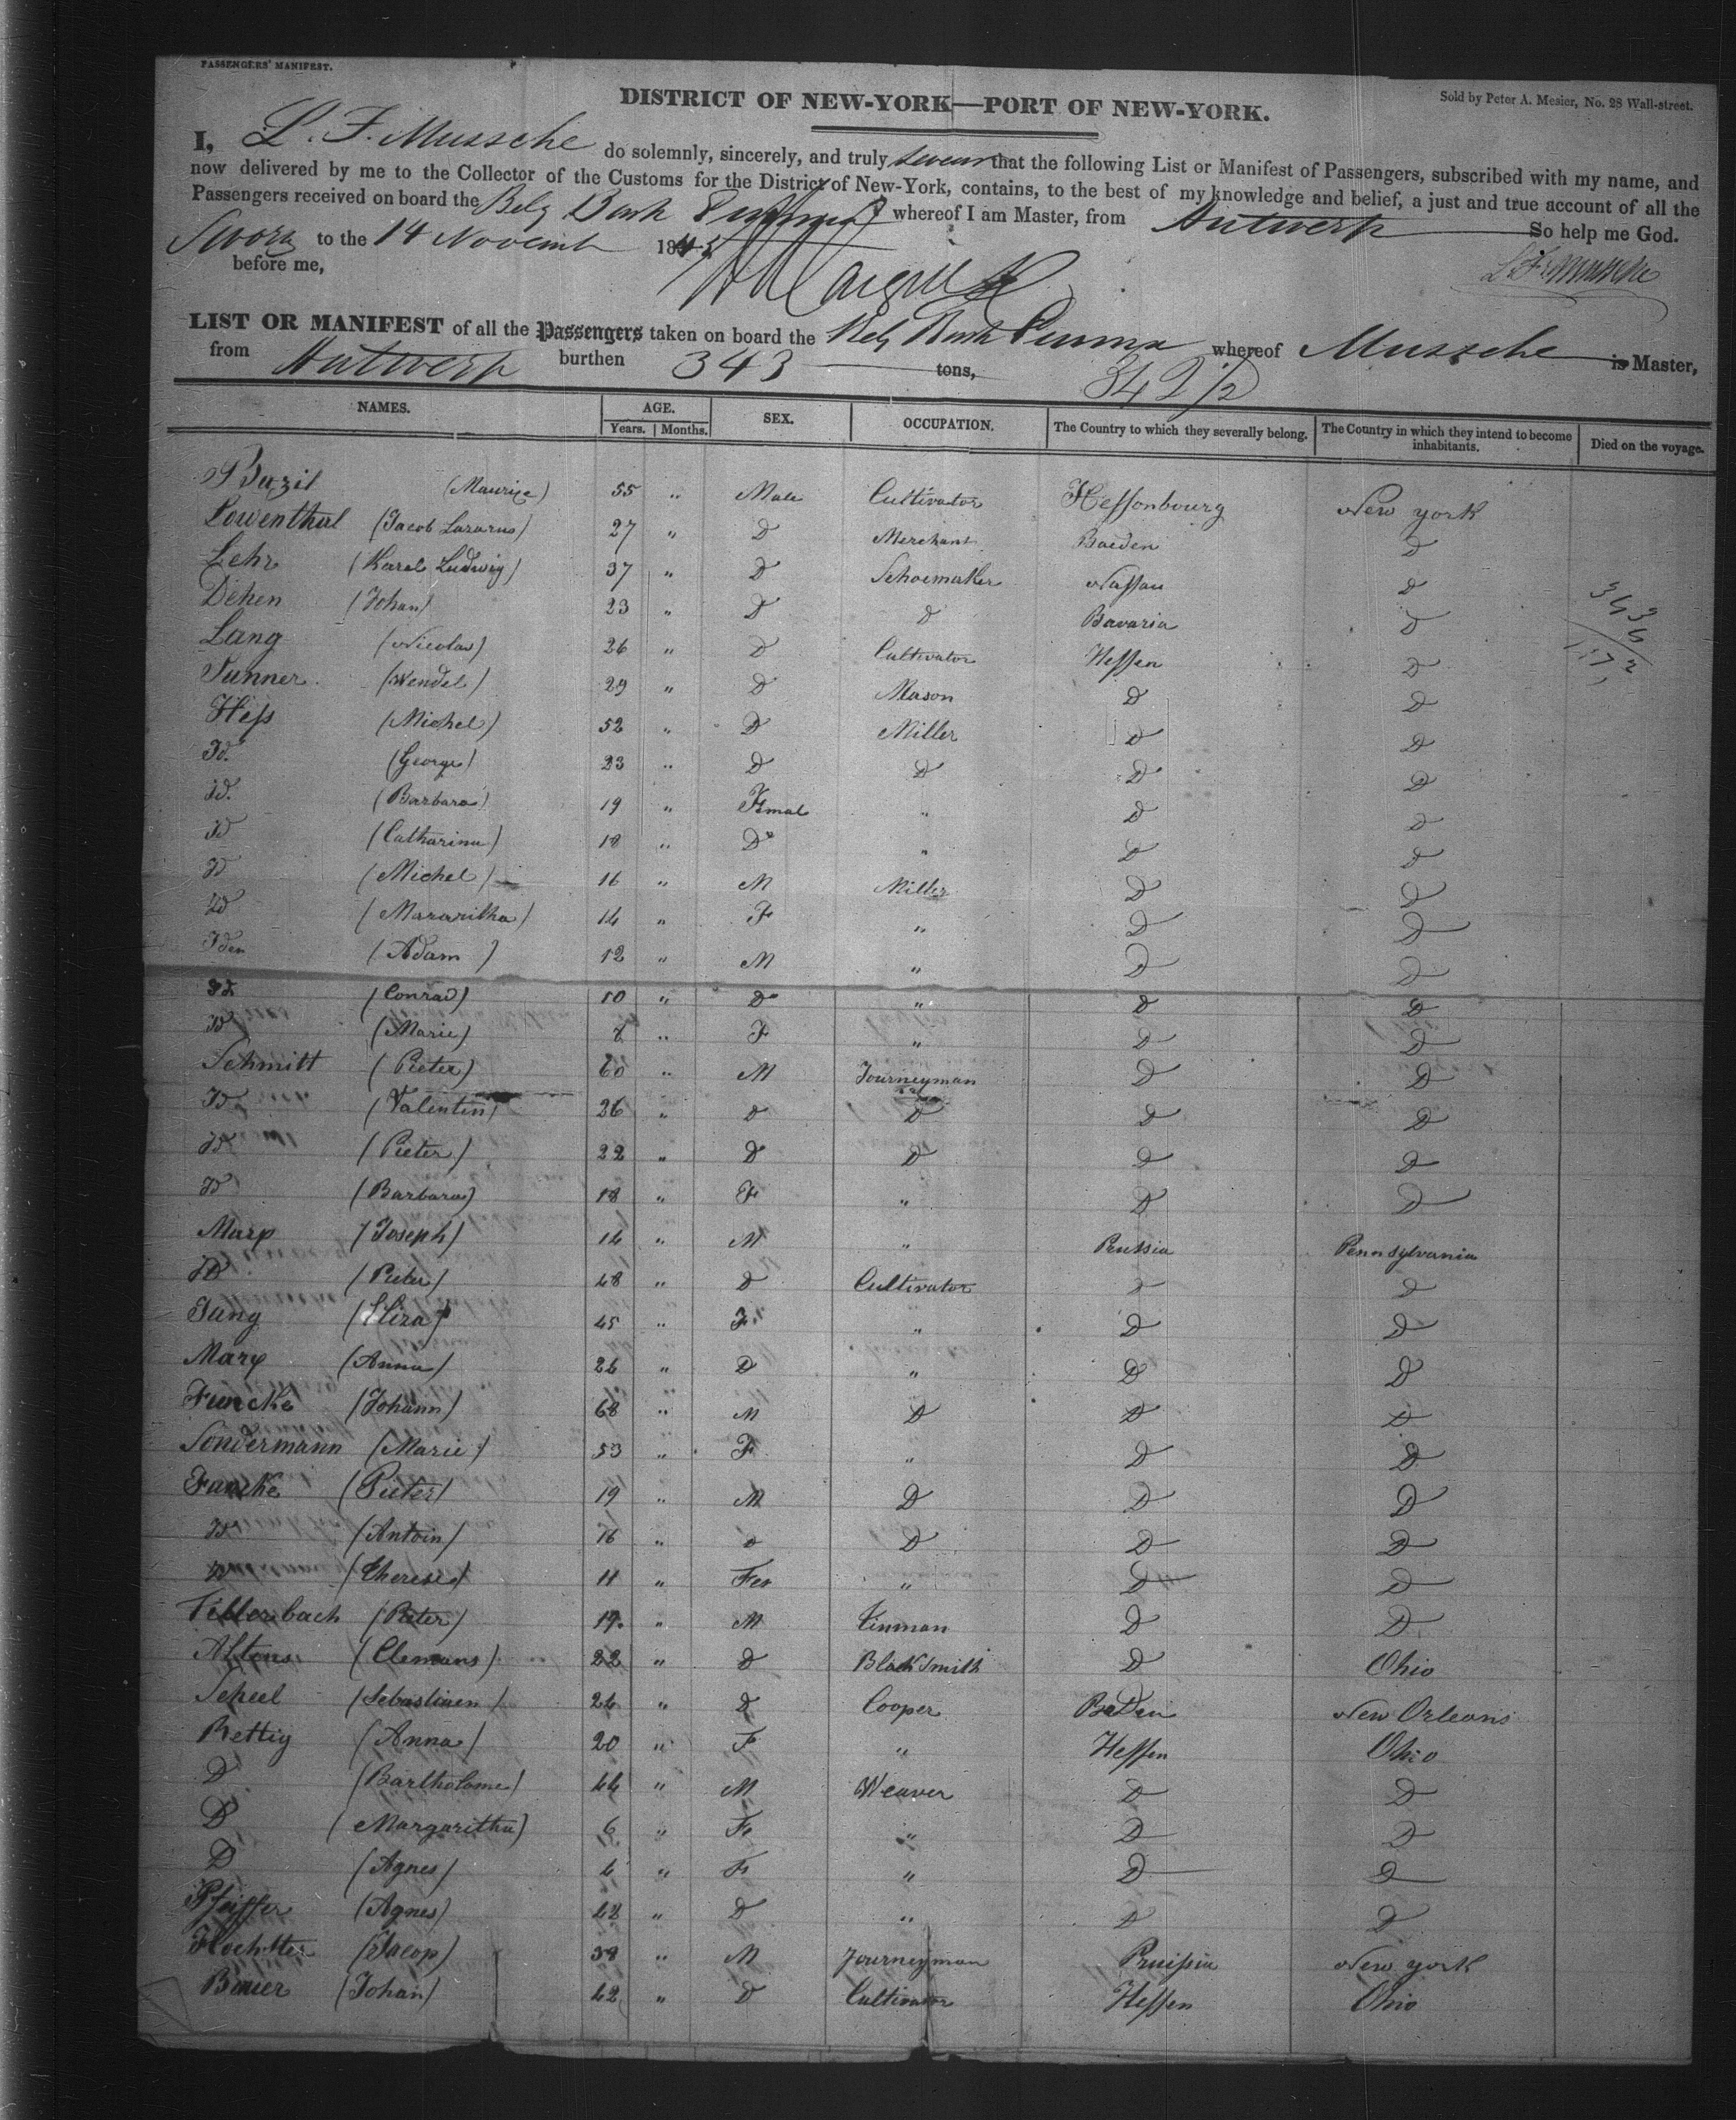 PASSENGERS' MANIFEST.
DISTRICT OF NEW-YORK—PORT OF NEW-YORK.
Sold by Peter A. Mesier, No. 28 Wall-street.
I, L. F. Mussche do solemnly, sincerely, and truly swear that the following List or Manifest of Passengers, subscribed with my name, and
now delivered by me to the Collector of the Customs for the District of New-York, contains, to the best of my knowledge and belief, a just and true account of all the
Passengers received on board the Belg Bark whereof I am Master, from Antwerp So help me God.
Sworn to the 14 Novemb 184
before me,
L. F. Mussche
LIST OR MANIFEST of all the Passengers taken on board the Belg Bark whereof Mussche is Master,
from Antwerp burthen 343 tons, 342 1/2
NAMES. AGE. SEX. OCCUPATION. The Country to which they severally belong. The Country in which they intend to become inhabitants. Died on the voyage.
Years. Months.
Bazil (Maurice) 55 " Male Cultivator Hessonbourg New york
Lowenthal (Jacob Lazarus) 27 " D Merchant Baeden D
Lehr (Karel Ludwig) 37 " D Schoemaker Nassau D
Dehen (Johan) 23 " D D Bavaria D
Lang (Nicolas) 26 " D Cultivator Hessen D
Sunner (Wendel) 29 " D Mason D D
Hess (Michel) 52 " D Miller D D
Id. (George) 23 " D D D D
id. (Barbara) 19 " Femal " D D
Id (Catharina) 18 " D " D D
Id (Michel) 16 " M Miller D D
Id (Mararitha) 14 " F " D D
Iden (Adam) 12 " M " D D
Id (Conrad) 10 " D " D D
Id (Marie) 8 " F " D D
Schmitt (Pieter) 60 " M Journeyman D D
Id (Valentin) 26 " D D D D
Id (Pieter) 22 " D D D D
Id (Barbara) 18 " F " D D
Marx (Joseph) 14 " M " Prussia Pennsylvania
Id (Pieter) 48 " D Cultivator D D
Jung (Eliza) 45 " F " D D
Marx (Anna) 24 " D " D D
Funcke (Johann) 68 " M D D D
Sondermann (Marie) 53 " F " D D
Funcke (Pieter) 19 " M D D D
Id (Antoin) 16 " D D D D
Id (Therese) 11 " Fe " D D
Fillerbach (Pieter) 19 " M Tinman D D
Altens (Clemans) 22 " D Blacksmith D Ohio
Scheel (Sebastiaen) 24 " D Cooper Baden New Orleans
Rettig (Anna) 20 " F " Hessen Ohio
D (Bartholome) 44 " M Weaver D D
D (Margaritha) 6 " F " D D
D (Agnes) 4 " F " D D
Pfeiffer (Agnes) 42 " D " D D
Hochstter (Jacop) 38 " M Journeyman Pruissia New york
Bauer (Johan) 42 " D Cultivator Hessen Ohio